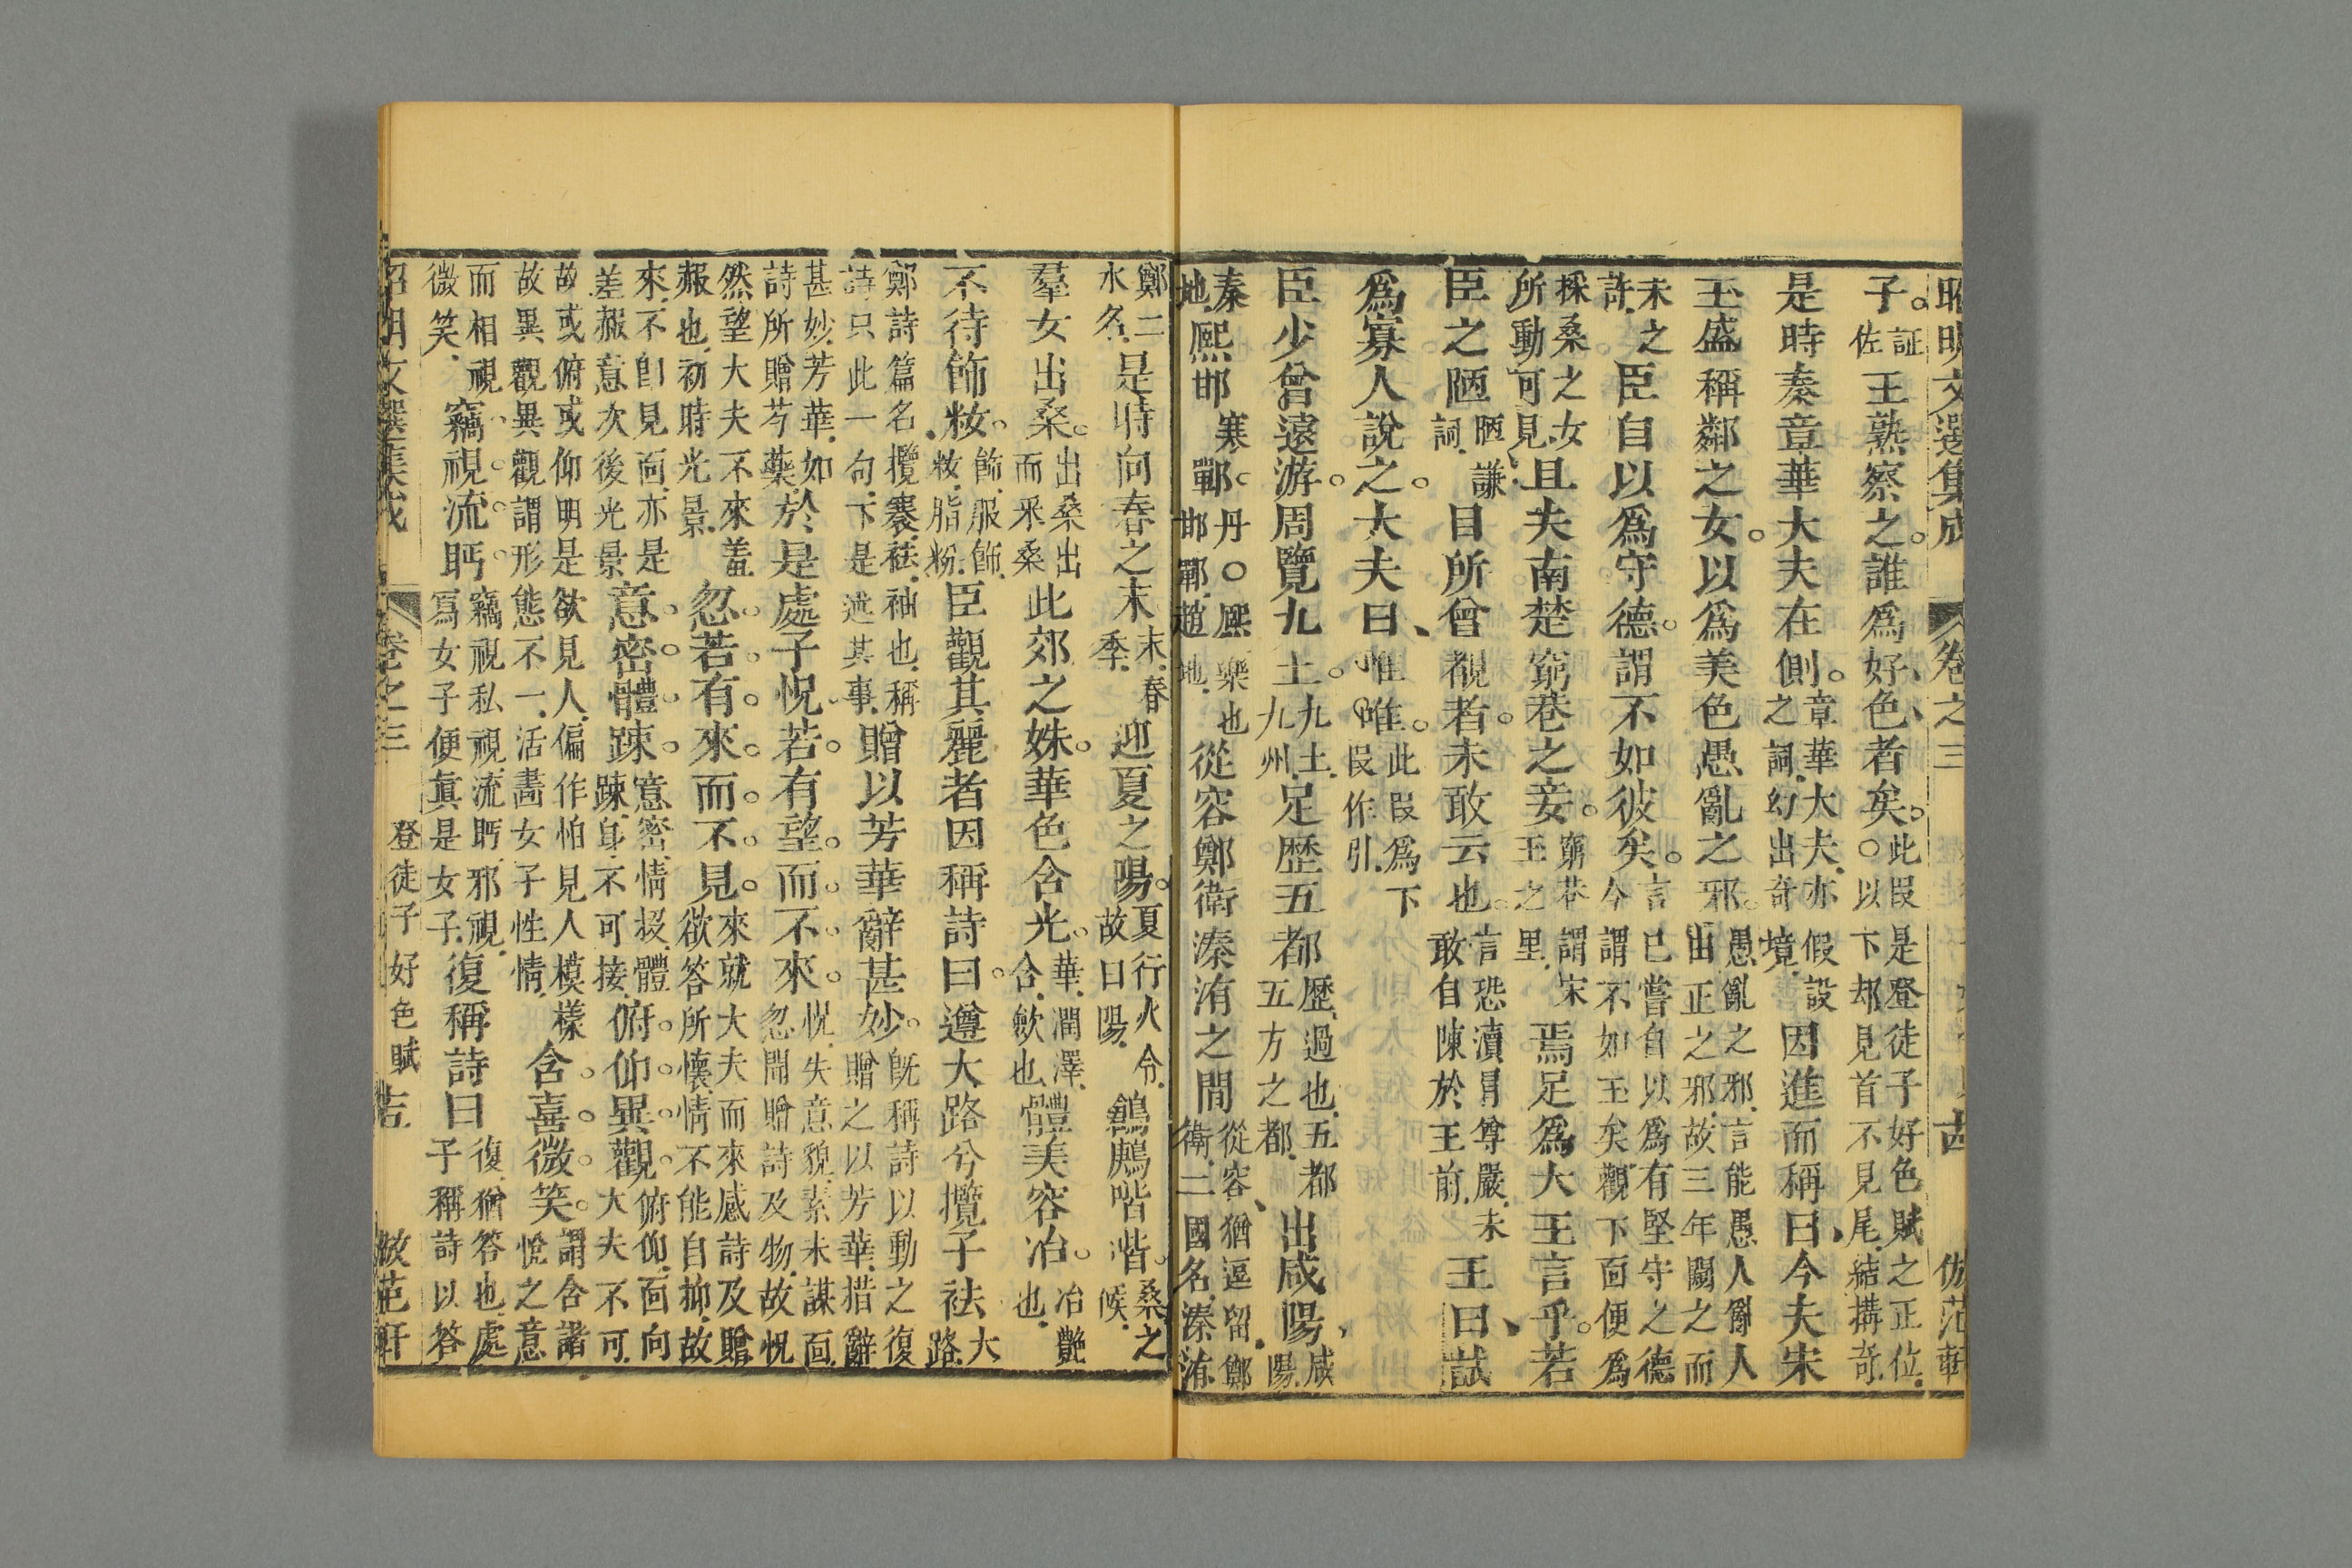 昭明文選集成　卷之三　古　倣范軒
子。証佐王熟察之。誰爲好色者矣。○此叚是登徒子好色賦之正位以下却見首不見尾結搆奇
是時秦章華大夫在側。章華大夫亦假設之詞幻出奇境因進而稱曰今夫宋
玉盛稱鄰之女。以爲美色愚亂之邪。愚亂之邪言能愚人亂人由正之邪故三年闚之而
未之許臣自以爲守德。謂不如彼矣。言已嘗自以爲有堅守之德今謂不如玉矣觀下面便爲
採桑之女所動可見且夫南楚窮巷之妾。窮巷謂宋王之里焉足爲大王言乎。若
臣之陋陋謙詞目所曾覩者。未敢云也。言恐瀆冒尊嚴未敢自陳於王前王曰試
爲寡人說之。大夫曰唯唯。此叚爲下叚作引
臣少曾遠游。周覽九土。九土九州足歷五都歷過也五都五方之都出咸陽咸陽
秦地熈邯寒鄲丹○熈樂也邯鄲趙地從容鄭衛溱洧之間從容猶逗留鄭衛二國名溱洧
鄭二水名是時向春之末末春季迎夏之陽。夏行火令故曰陽鶬鶊喈喈。桑之候
羣女出桑。出桑出而采桑此郊之姝。華色含光。華潤澤含歛也體美容冶。冶艷也
不待飾粧。飾服飾粧脂粉臣觀其麗者因稱詩曰。遵大路兮攬子袪大路
鄭詩篇名攬褰袪袖也稱詩只此一句下是述其事贈以芳華辭甚妙。旣稱詩以動之復贈之以芳華措辭
甚妙芳華如詩所贈芍藥於是處子怳若。有望。而。不。來。怳失意貌素未謀面忽聞贈詩及物故怳
然望大夫不來羞赧也初時光景忽。若。有。來。而。不。見。來就大夫而來感詩及贈欲答所懷情不能自抑故
來不卽見面亦是羞赧意次後光景意。密。體。踈。意密情掇體踈身不可接俯。仰。異。觀。俯仰面向大夫不可
故或俯或仰明是欲見人偏作怕見人模樣故異觀異觀謂形態不一活畵女子性情含。喜。微。笑。謂含諸悅之意
而相視微笑竊。視。流。眄。竊視私視流眄邪視寫女子便眞是女子復稱詩曰復猶答也處子稱詩以答
昭明文選集成　卷之三　登徒子好色賦　古　倣范軒